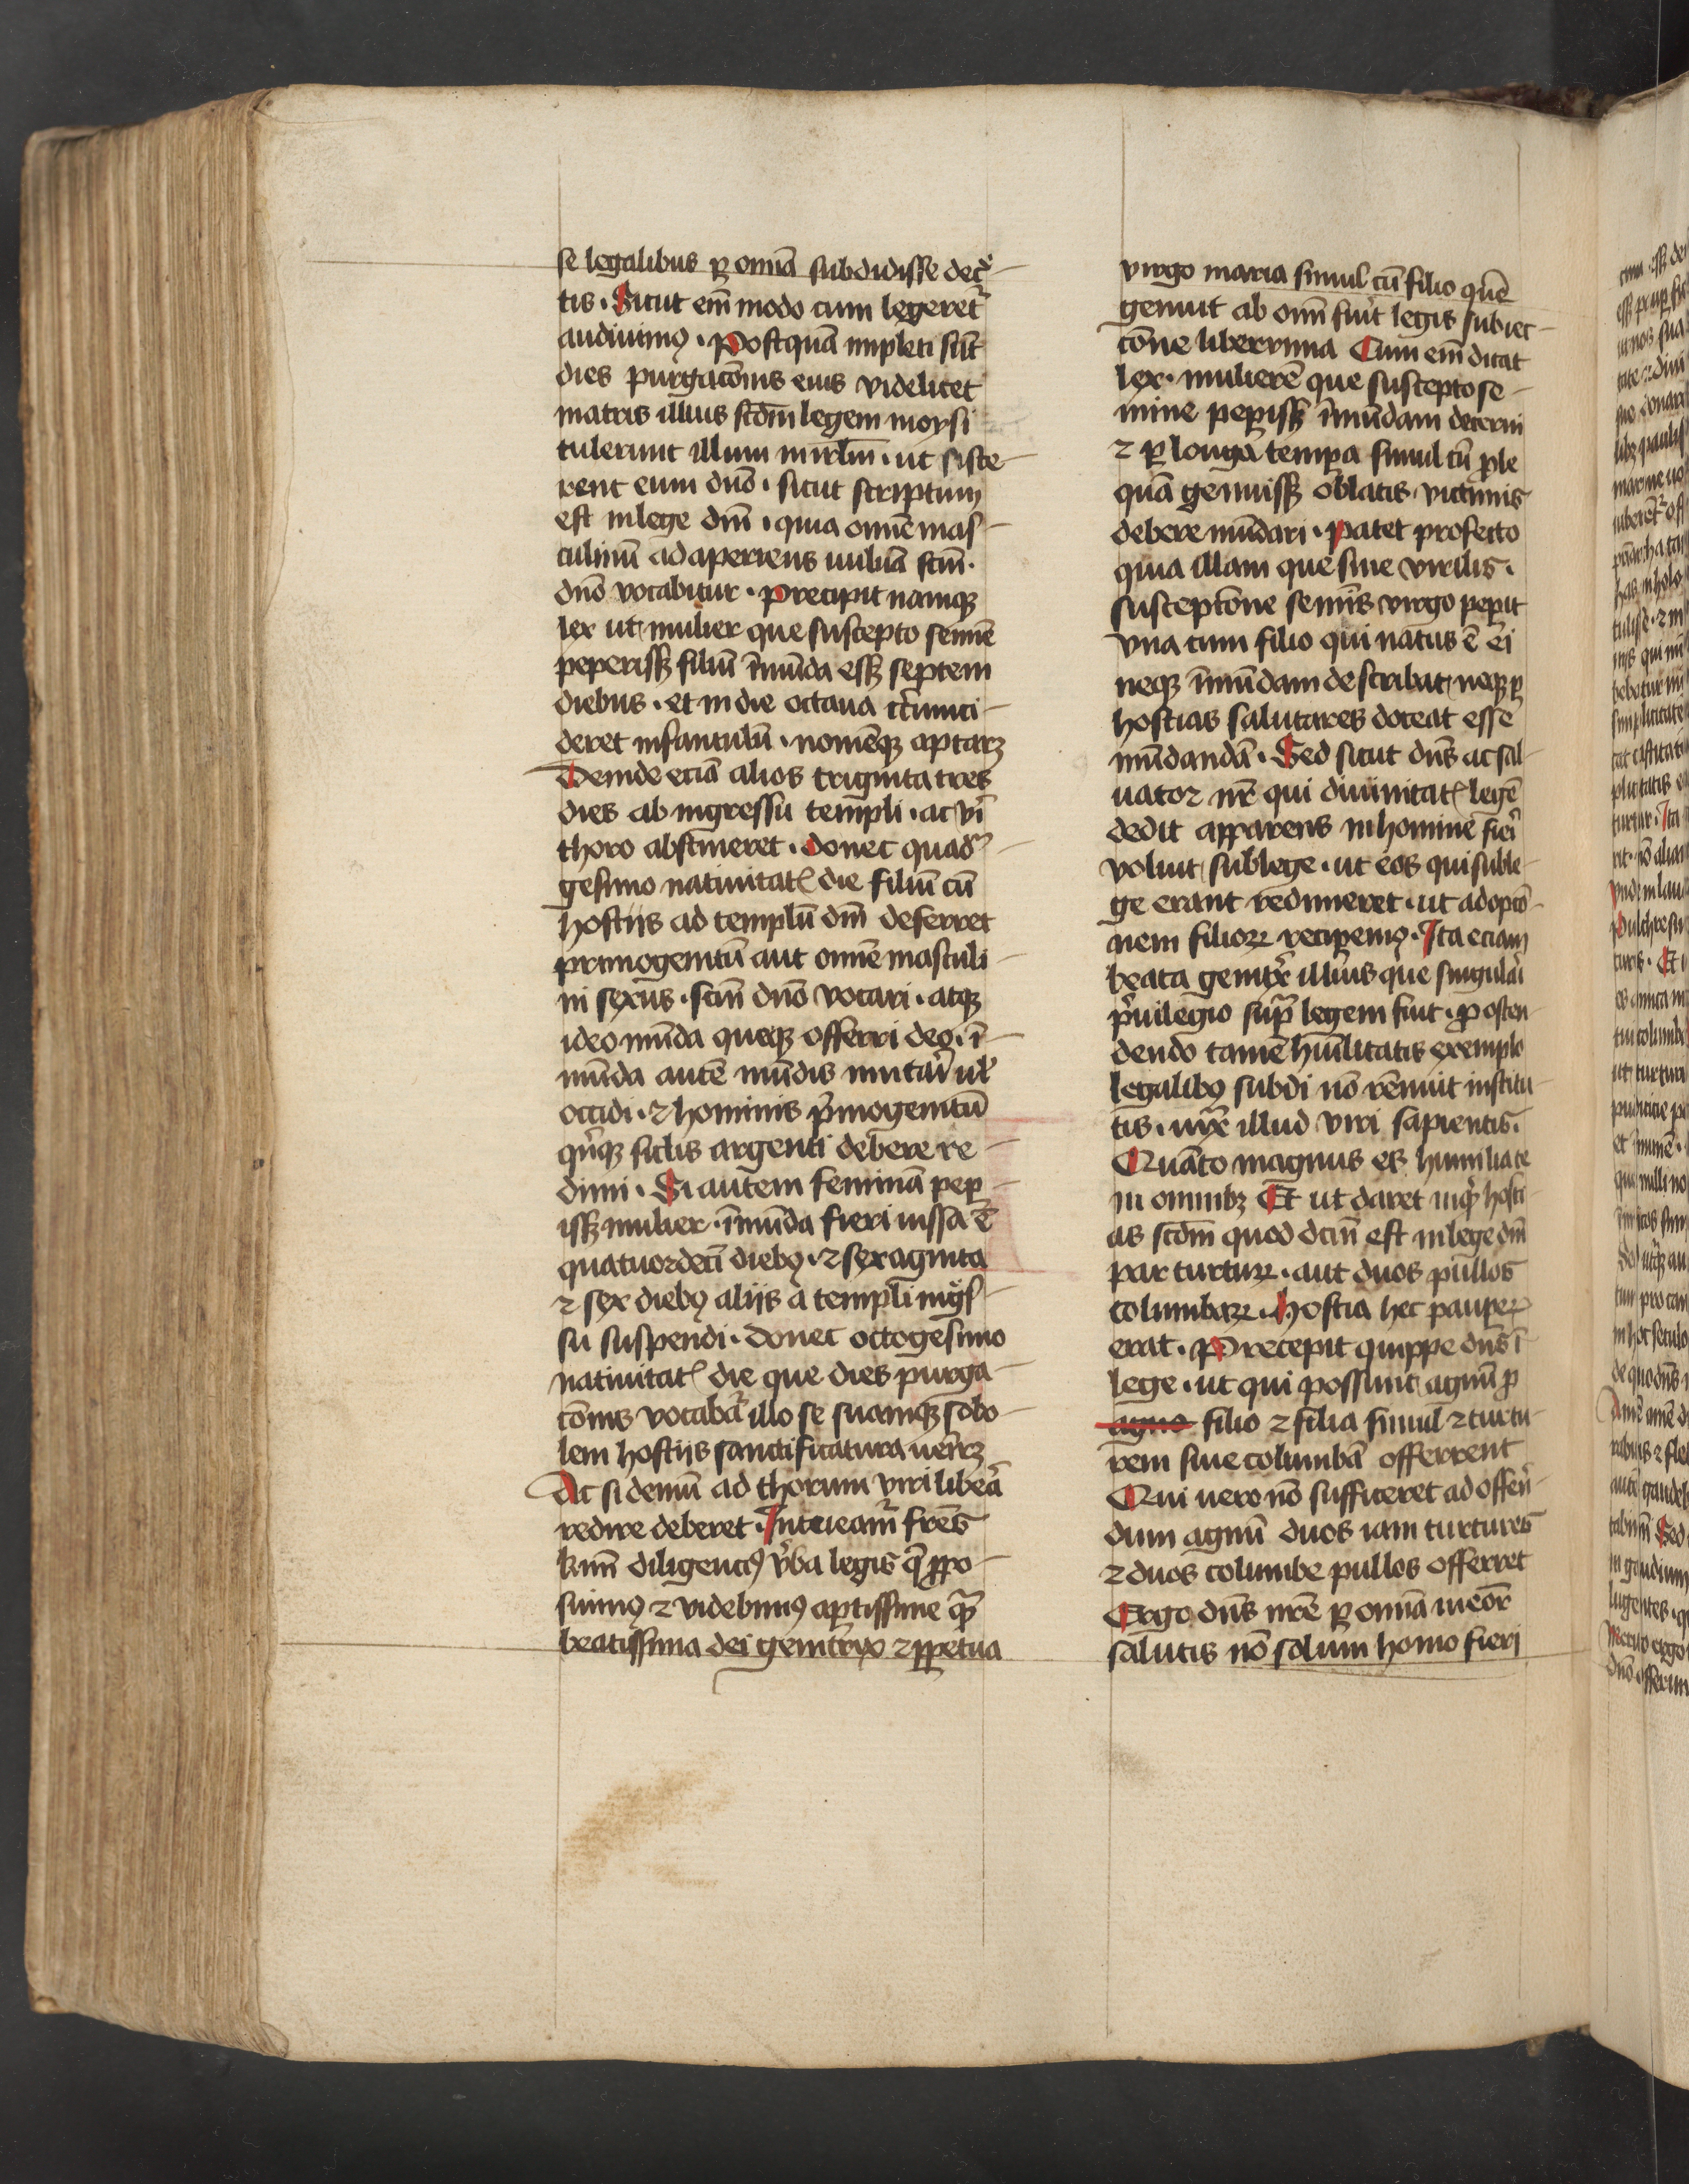 se legalibus ꝑ omīa subdidisse decͤ-
tis . Sicut em̄ modo cum legeretᷣ
audiuimꝰ . Postquā impleti sūt
dies purgacōnis eius videlicet
matris illius scdm̄ legem moysi
tulerunt illum in irlm̄ . ut siste-
rent eum dn̄o . sicut scriptum
est in lege dn̄i . quia omē mas-
culinū adaperiens vuluā scm̄ .
dn̄o vocabitur . Precipit namqꝫ
lex ut mulier que suscepto semīe
peperissꝫ filiū īmūda essꝫ septem
diebus . et in die octaua cͥcumci-
deret infantulū . nomēqꝫ aptarꝫ
Deinde eciā alios triginta tres
dies ab ingressu templi . ac vͥi
thoro abstineret . donec quadᷓ-
gesimo natiuitatꝭ die filiū cū
hostijs ad templū dn̄i deferret
primogenitū aut omē masculi-
ni sexus . scm̄ dn̄o vocari . atqꝫ
ideo mūda queqꝫ offerri deo . ī-
mūda autē mūdis mutari uł
occidi . ⁊ hominis pͥmogenitū
qͥnqꝫ siclis argenti debere re-
dimi . Si autem feminā pep-
issꝫ mulier . īmūda fieri iussa ē
quatuordecī diebꝰ . ⁊ sexaginta
⁊ sex diebꝰ alijs a templi ingͤs-
su suspendi . donec octogesimo
natiuitatꝭ die que dies purga-
cōnis vocabatᷣ illo se suamqꝫ sobo-
lem hostijs sanctificatura venirꝫ
Ac si demū ad thorum viri liberā
redire deberet . Intueamᷣ fr̄es
kmī diligenciꝰ v̓ba legis q̄ ꝓpo-
suimꝰ ⁊ videbimꝰ aptissime qᷓꝫ
beatissima dei genitrix ⁊ ꝑpetua
virgo maria simul cū filio quē
genuit ab om̄i fuit legis subiec-
cōne liberrima Cum em̄ dicat
lex . mulierē que suscepto se-
mine peperissꝫ īmūdam decerni
⁊ ꝑ longa tempa simul cū ꝓle
quā genuissꝫ oblatis victimis
debere mūdari . Patet profecto
quia illam que sine virilis .
susceptōne semīs virgo pepit
vna cum filio qui natus ē ei
neqꝫ īmūdam describat neqꝫ ꝑ
hostias salutares doceat esse
mūdandā . Sed sicut dn̄s ac sal-
uator nr̄ qui diuinitatꝭ legē
dedit apparens in homine fieri
voluit sub lege . ut eos qui sub le-
ge erant redimeret . ut adopcō-
nem filioꝝ recipemꝰ . Ita eciam
beata genitͥx illius que singulari
pͥuilegio supᷓ legem fuit . ꝓ osten-
dendo tamē hūilitatis exemplo
legalibꝰ subdi nō rēnuit institu-
tis . iuxͣ illud viri sapientis .
Quāto magnus es humilia te
in omnibꝫ Et ut daret inqͥt hosti-
as scdm̄ quod dcm̄ est in lege dn̄i
par turtuꝝ . aut duos pullos
columbaꝝ . Hostia hec pauꝑꝝ
erat . Precepit quippe dn̄s ī
lege . ut qui possunt agnū ꝓ
agno filio ⁊ filia simul ⁊ turtu-
rem siue columbā offerrent
Qui uero nō sufficeret ad offerē-
dum agnū duos iam turtures
⁊ duos columbe pullos offerret
Ergo dn̄s nr̄e ꝑ omīa meōr
salutis nō solum homo fieri